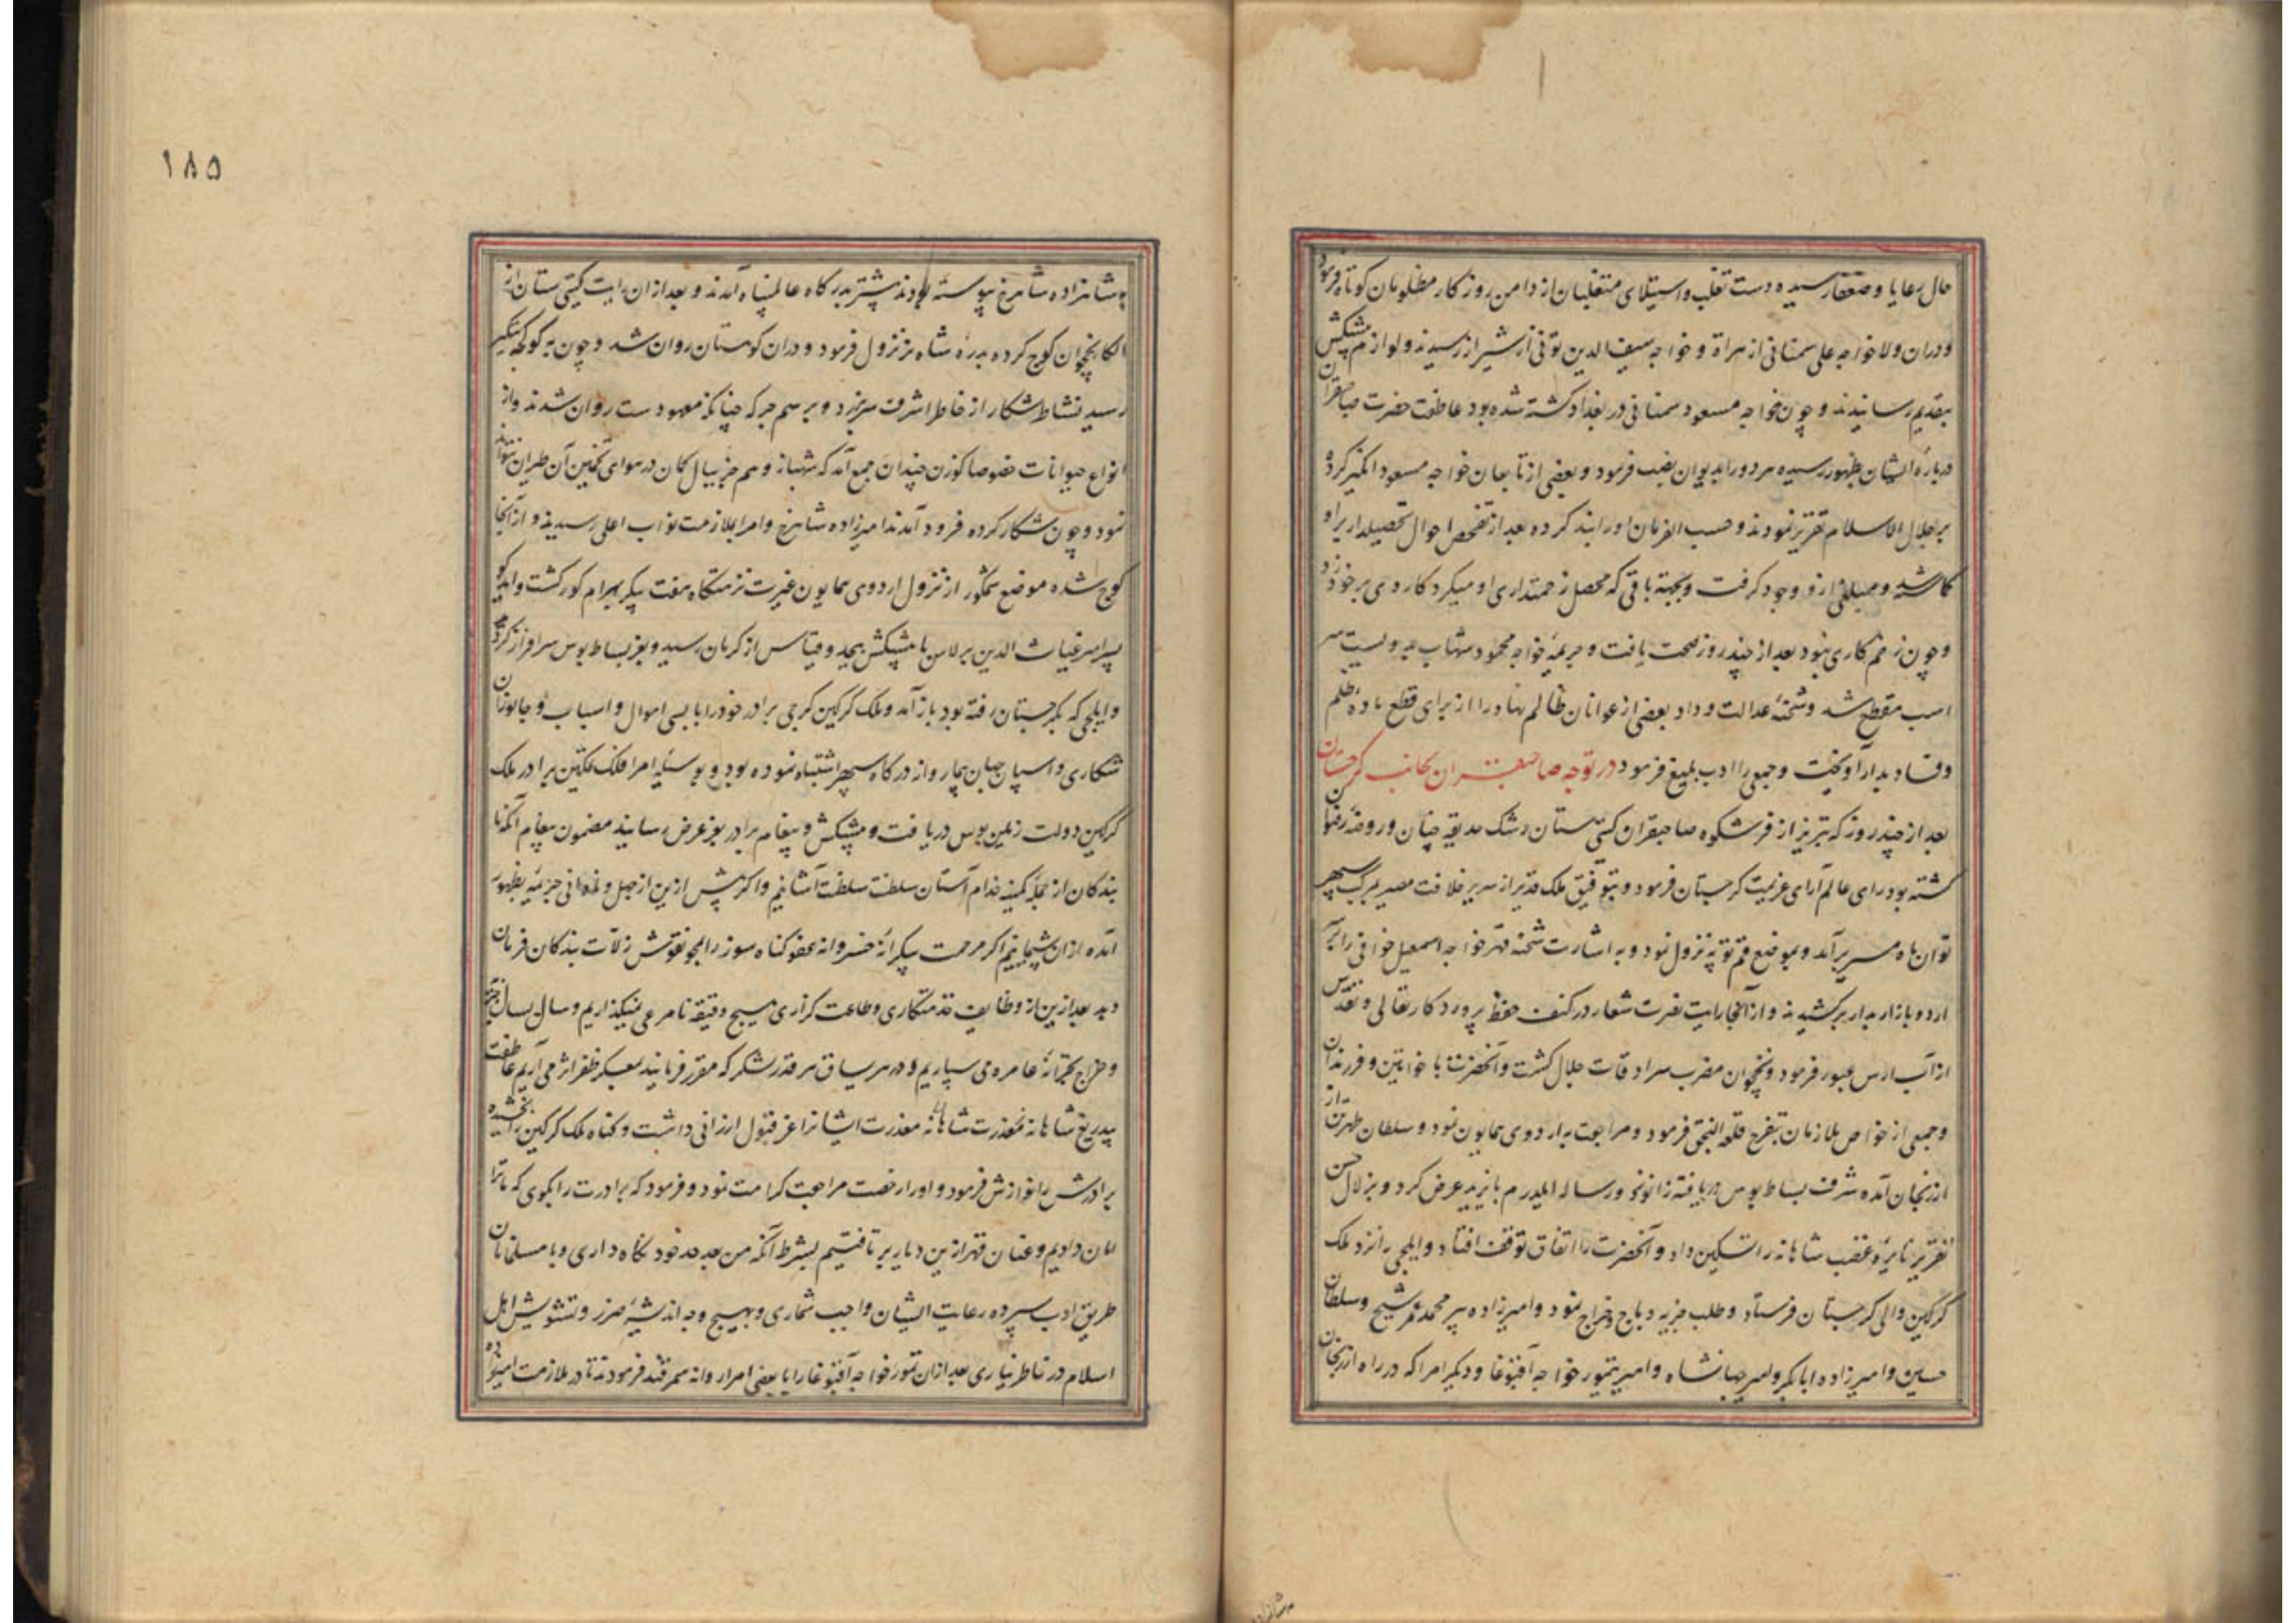 حال رعایا و ضعفا رسیده دست تغلب و استیلای متغلبان از دامن روزکار مظلومان کوتاه فرمود
و دران ولا خواجه علی سمنانی از هراة و خواجه سیف الدین تونی از شیراز رسیدند و لوازم پیشکش
بتقدیم رسانیدند و چون خواجه مسعود سمنانی در بغداد کشته شده بود عاطفت حضرت صاحبقران
درباره ایشان بظهور رسیده هر دو را بدیوان نصب فرمود و بعضی از تابعان خواجه مسعود انکیز کرده
بر جلال الاسلام تقریر نمودند و حسب الفرمان او را بند کرده بعد از تفحص احوال تحصیلدار بر او
کماشته شد و مبلغی ازو وجه کرفت و بجهة باقی که محصل زحمتداری او میکرد کاردی بر خود زد
و چون زخم کاری نبود بعد از چند روز صحت یافت و جریمه خواجه محمود شهاب بدویست سر
اسب مقطع شد و شحنه عدالت و داد بعضی از عوانان ظالم نهاد را از برای قطع ماده ظلم
و فساد بدار آویخت و جمعی را ادب بلیغ فرمود در توجه صاحبقران بجانب کرجستان
بعد از چند روز که تبریز از فر شکوه صاحبقران کیتی ستان رشک حدیقه جنان و روضه رضوان
کشته بود رای عالم آرای عزیمت کرجستان فرمود و بتوفیق ملک قدیر از سریر خلافت مصیر بر مرکب سپهر
توان ماه مسیر برآمد و بموضع قم توپه نزول نمود و به اشارت شحنه قهر خواجه اسمعیل خوافی را بر سر
اردو بازار بدار برکشیدند و از آنجا رایت نصرت شعار در کنف حفظ پروردکار تعالی و تقدس
از آب ارس عبور فرمود و نخجوان مضرب سرادقات جلال کشت و آنحضرت با خواتین و فرزندان
و جمعی از خواص ملازمان بتفرج قلعه النجق فرمود و مراجعت به اردوی همایون نمود و سلطان طهرتن از
ارزنجان آمده شرف بساط بوس دریافته زانو زد و رساله ایلدرم بایزید عرض کرد و بزلال حسن
تقریر نایره غضب شاهانه را تسکین داد و آنحضرت را اتفاق توقف افتاد و ایلچی را نزد ملک
کرکین والی کرجستان فرستاد و طلب جزیه و باج و خراج نمود و امیرزاده پیر محمد عمر شیخ و سلطان
حسین و امیرزاده ابابکر و امیر جهانشاه و امیر تیمور خواجه آقبوغا و دیکر امرا که در راه ارزنجان
به شاهزاده شاهرخ پیوسته بودند پیشتر بدرکاه عالم پناه آمدند و بعد از ان رایت کیتی ستان از
الکا نخجوان کوچ کرده بدره شاه بز نزول فرمود و دران کوهستان روان شد و چون به کوکچه تنکیز
رسید نشاط شکار از خاطر اشرف سر بر زد و برسم جرکه چنانکه معهودست روان شدند و از
انواع حیوانات خصوصا کوزن چندان جمع آمد که شهباز وهم جز ببال کمان در هوای تخمین آن طیران نتواند
نمود و چون شکار کرده فرود آمدند امیرزاده شاهرخ و امرا بملازمت نواب اعلی رسیدند و از آنجا
کوچ شده موضع شمکور از نزول اردوی همایون غیرت نزهتکاه هفت پیکر بهرام کور کشت و ایدکو
پسر امیر غیاث الدین برلاس با پیشکش بیحد و قیاس از کرمان رسید و بعز بساط بوس سرافراز کردید
و ایلچی که بکرجستان رفته بود باز آمد و ملک کرکین کرجی برادر خود را با بسی اموال و اسباب و جانوران
شکاری و اسپان جهان پیما روانه درکاه سپهر اشتباه نموده بود و بوسیله امرا فلک تمکین برادر ملک
کرکین دولت زمین بوس دریافت و پیشکش و پیغام برادر بعز عرض رسانید مضمون پیغام آنکه ما
بندکان از جمله کمینه خدام آستان سلطنت آشیانیم و اکر پیش ازین از جهل و نادانی جریمه بظهور
آمده از ان پشیمانیم اکر مرحمت بیکرانه خسروانه عفو کناه سوز را بمحو نقوش زلات بندکان فرمان
دهد بعد ازین از وظایف خدمتکاری و طاعت کزاری هیچ دقیقه نامرعی نمیکذاریم و سال بسال جزیه
و خراج بخزانه عامره می سپاریم و در هر یساق هر قدر لشکر که مقرر فرمایند بمعسکر ظفر اثر می آریم عاطفت
بیدریغ شاهانه معذرت ایشانرا عز قبول ارزانی داشت و کناه ملک کرکین بخشیده
برادرش را نوازش فرمود و او را رخصت مراجعت کرامت نمود و فرمود که برادرت را بکوی که ما ترا
امان دادیم و عنان قهر ازین دیار بر تافتیم بشرط آنکه من بعد حد خود نکاه داری و با مسلمانان
طریق ادب سپرده رعایت ایشان واجب شماری و بهیچ وجه اندیشه ضرر و تشویش اهل
اسلام در خاطر نیاری بعد از ان تیمور خواجه آقبوغا را با بعضی امرا روانه سمرقند فرمودند تا در ملازمت امیرزاده
به شاهزاده
۱۸۵